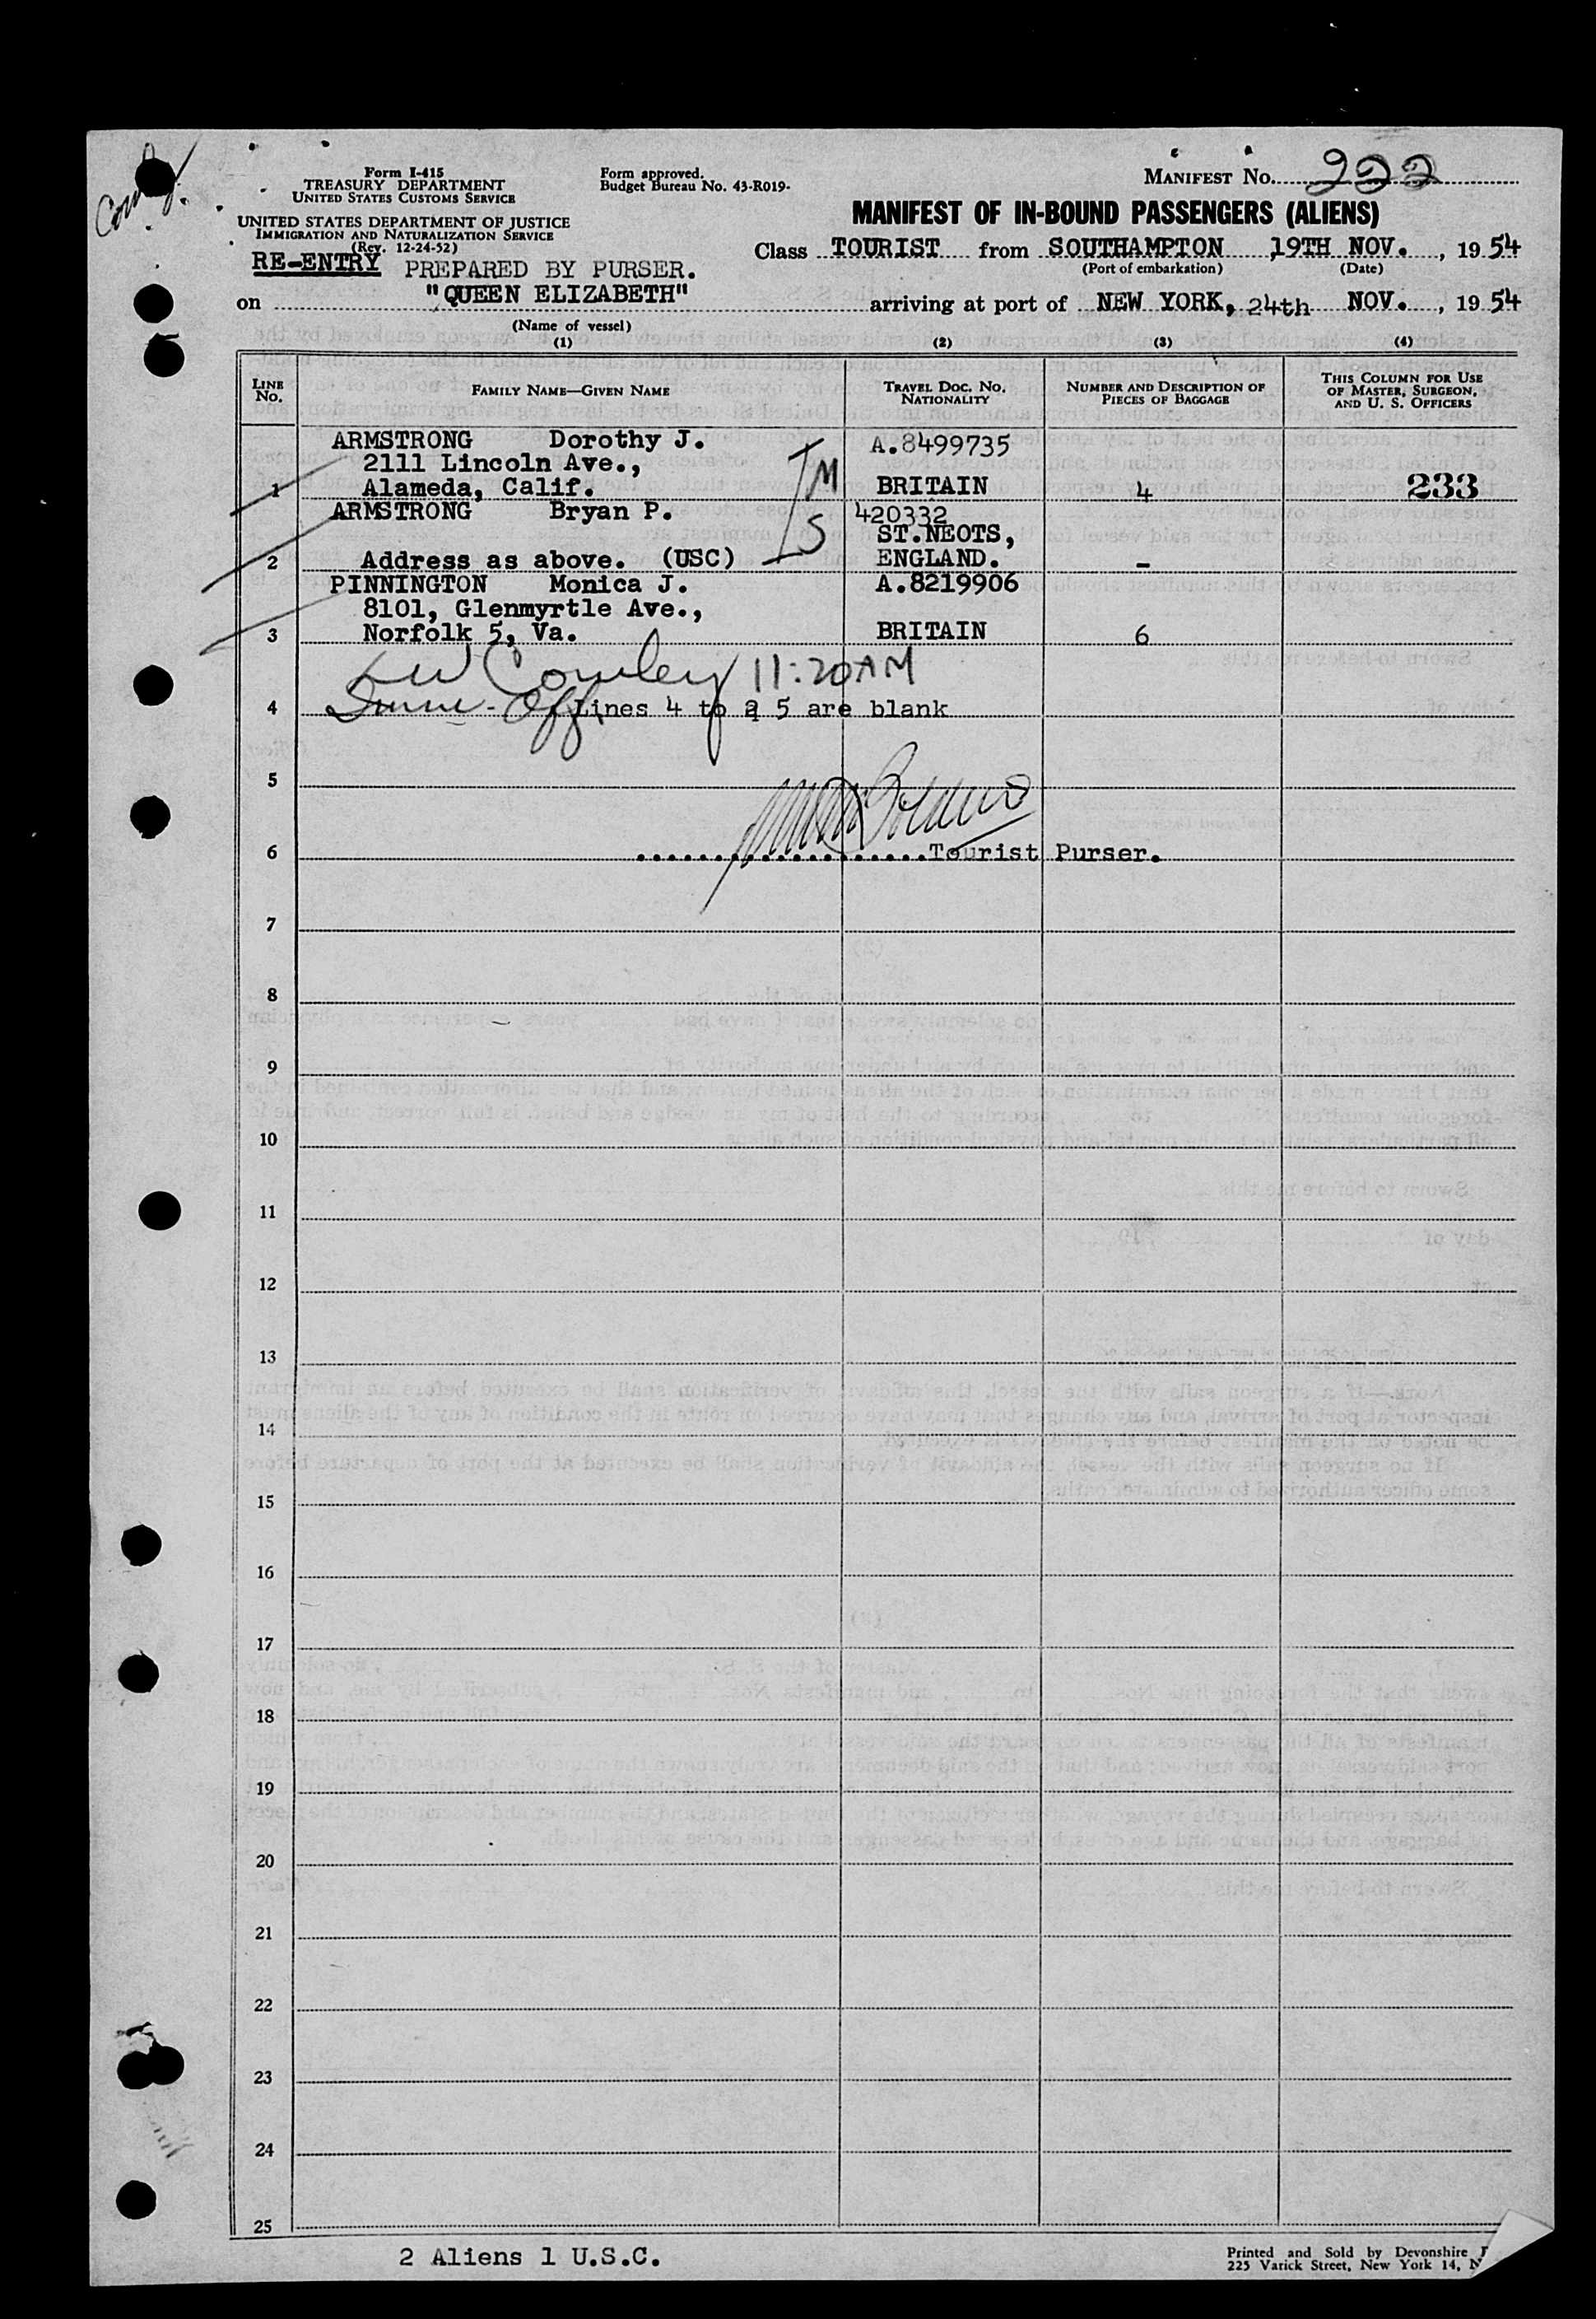 Form I-415
TREASURY DEPARTMENT
UNITED STATES CUSTOMS SERVICE
UNITED STATES DEPARTMENT OF JUSTICE
IMMIGRATION AND NATURALIZATION SERVICE
(Rev. 12-24-52)
Form approved.
Budget Bureau No. 43-R019-
MANIFEST No. 222
MANIFEST OF IN-BOUND PASSENGERS (ALIENS)
Class TOURIST from SOUTHAMPTON, 19TH NOV., 1954
(Port of embarkation) (Date)
RE-ENTRY PREPARED BY PURSER.
on "QUEEN ELIZABETH" arriving at port of NEW YORK, 24th NOV., 1954
(Name of vessel)
(1) (2) (3) (4)
LINE No. FAMILY NAME—GIVEN NAME TRAVEL DOC. NO. NATIONALITY NUMBER AND DESCRIPTION OF PIECES OF BAGGAGE THIS COLUMN FOR USE OF MASTER, SURGEON, AND U. S. OFFICERS
ARMSTRONG Dorothy J. A.8499735
2111 Lincoln Ave.,
1 Alameda, Calif. M BRITAIN 4 233
ARMSTRONG Bryan P. 420332
S ST.NEOTS,
2 Address as above. (USC) ENGLAND. -
PINNINGTON Monica J. A.8219906
8101, Glenmyrtle Ave.,
3 Norfolk 5, Va. BRITAIN 6
Cowley 11:20 AM
4 Off. Lines 4 to 5 are blank
5
6 ....................Tourist Purser.
7
8
9
10
11
12
13
14
15
16
17
18
19
20
21
22
23
24
25
2 Aliens 1 U.S.C.
Printed and Sold by Devonshire
225 Varick Street, New York 14, N